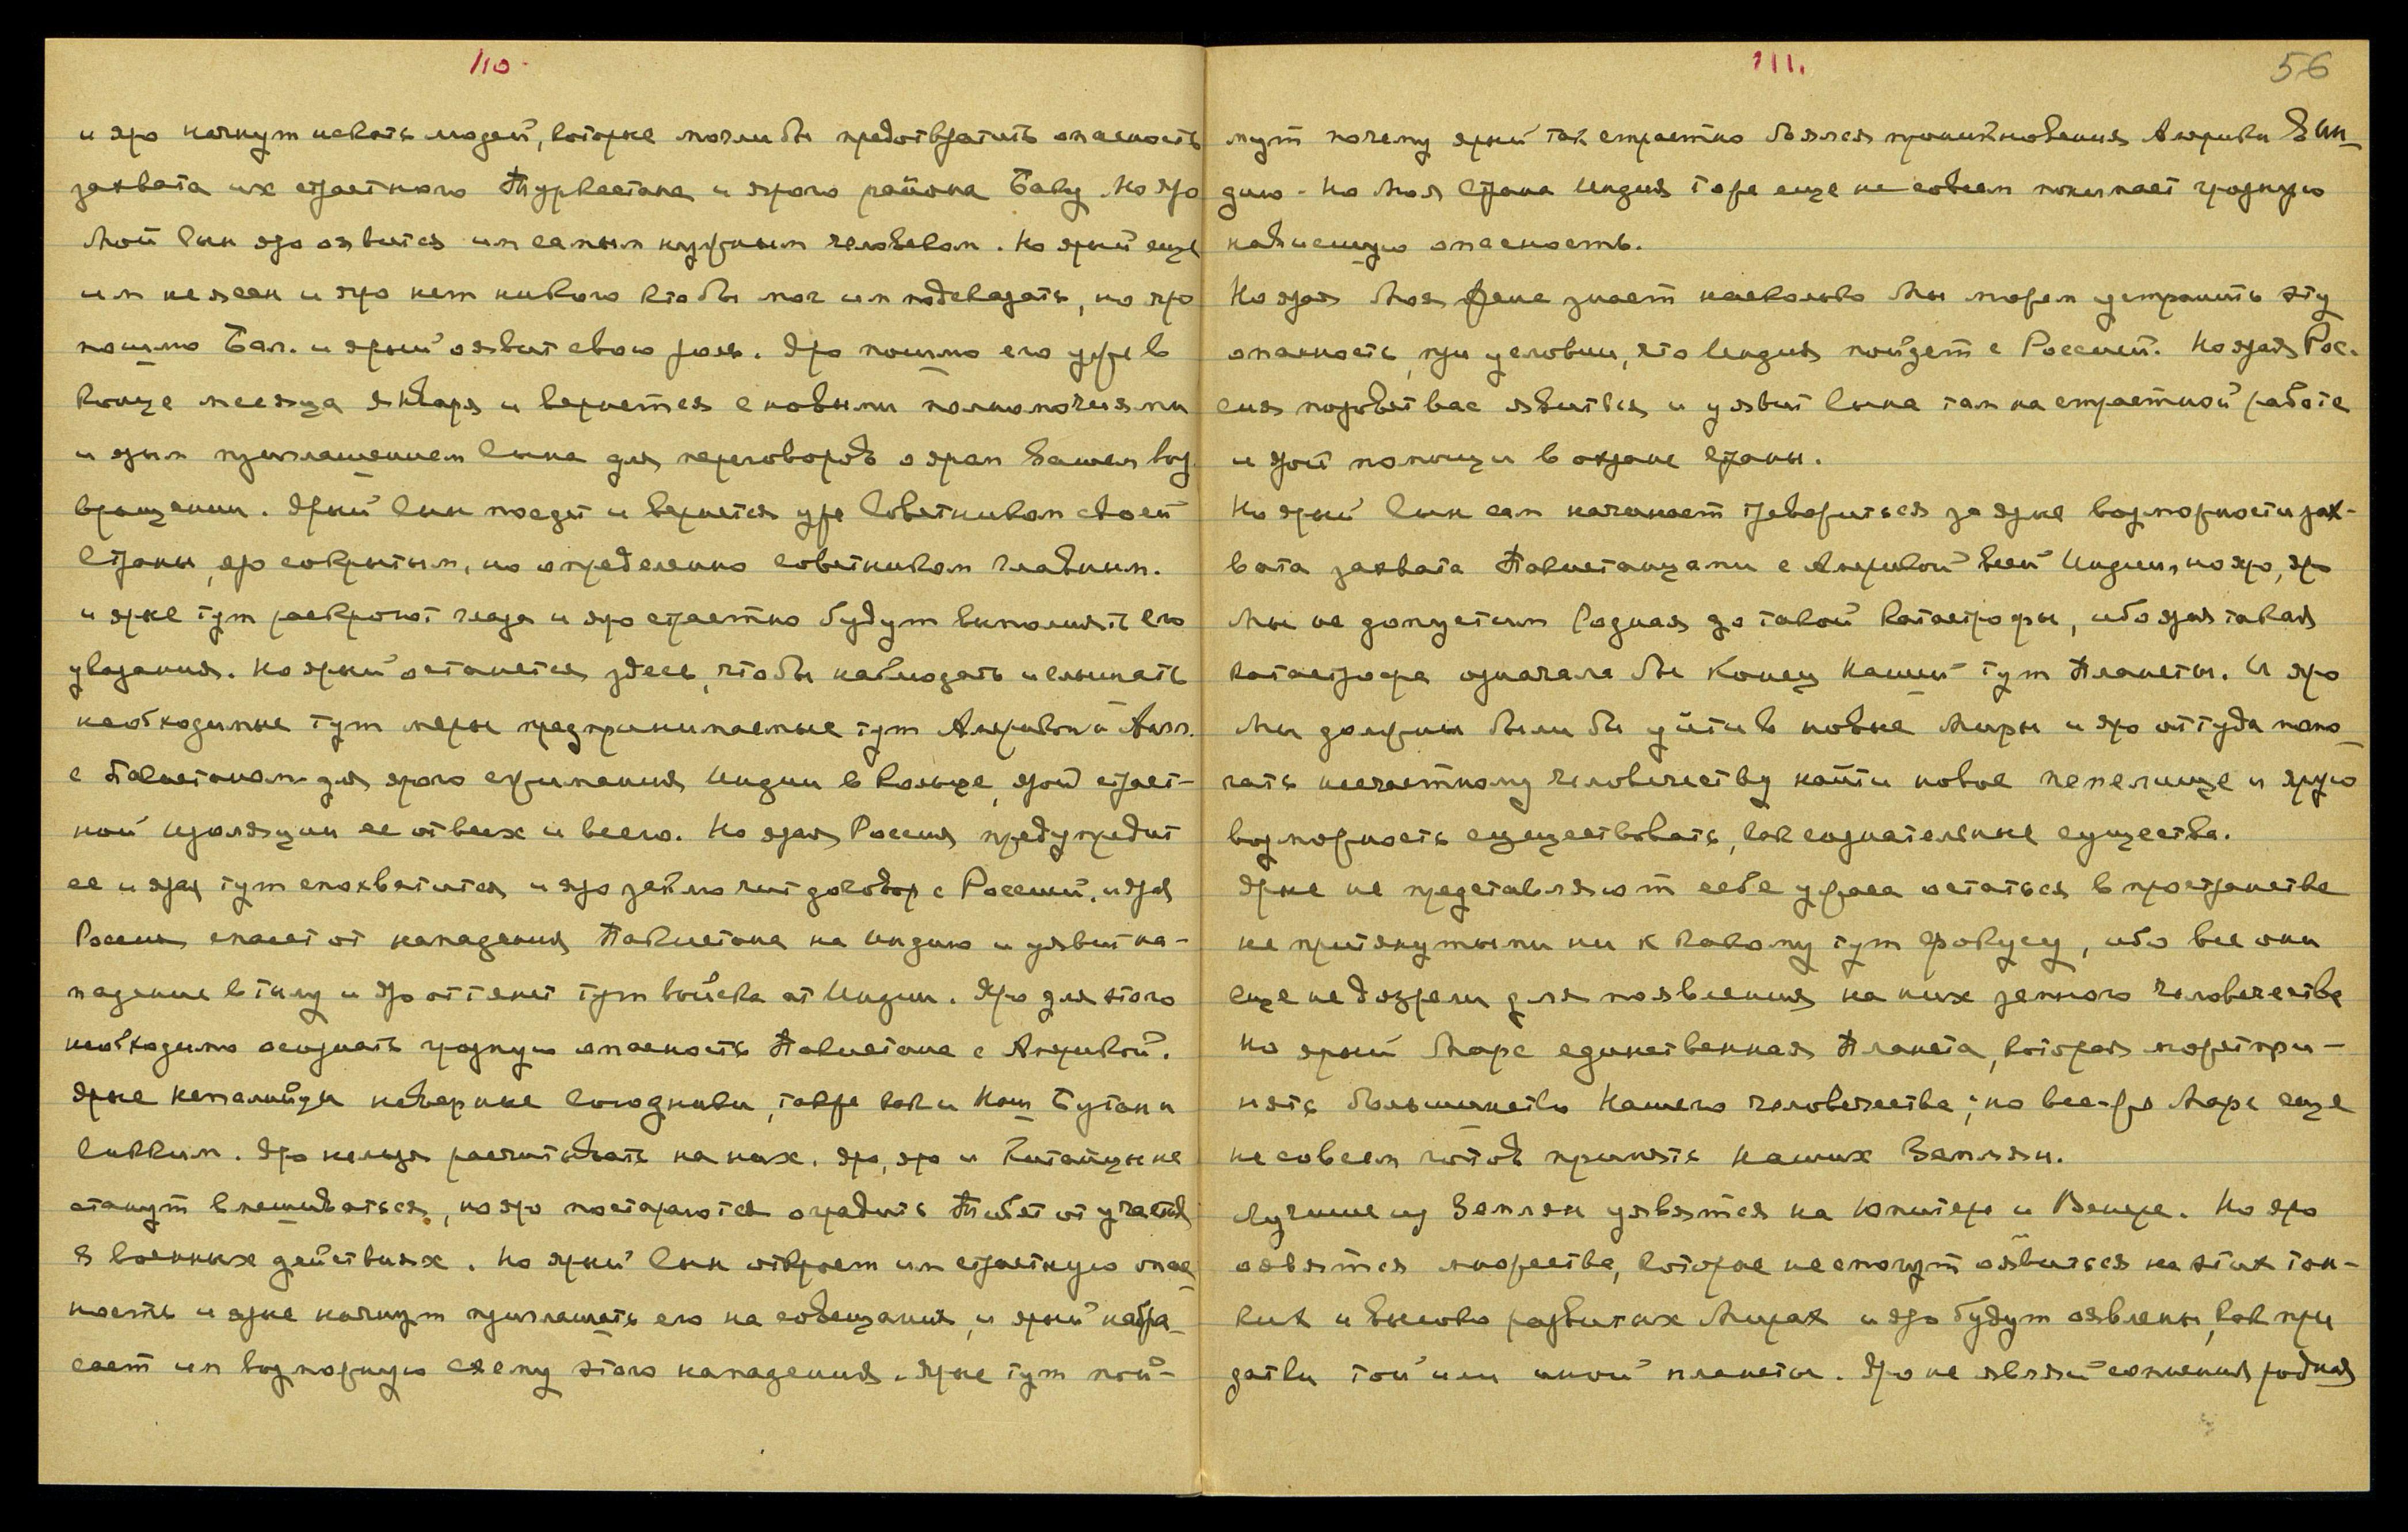 110.
и яро начнут искать людей, которые могли бы предотвратить опасность
захвата их страстного Туркестана и ярого района Баку. Но яро
Мой Сын яро оявится им самым нужным человеком. Но ярый еще
им не ясен и яро нет никого кто бы мог им подсказать, но яро
пошлю Бал. и ярый оявит свою роль. Яро пошлю его уже в
конце месяца Января и вернется с новыми полномочиями
и ярым приглашением Сына для переговоров о яром Вашем воз
вращении. Ярый Сын поедет и вернется уже Советником своей
Страны, яро сокрытым, но определенно советником главным.
и ярые тут раскроют глаза и яро страстно будут выполнять его
указания. Но ярый останется здесь, чтобы наблюдать и слышать
необходимые тут меры предпринимаемые тут Америкой и Англ.
с Пакистаном для ярого сжимания Индии в кольце, ярой страст-
ной изоляции ее от всех и всего. Но ярая Россия предупредит
ее и ярая тут спохватится и яро заключит договор с Россией. и ярая
Россия спасет от нападения Пакистана на Индию и уявит на-
падение в тылу и яро оттянет тут войска от Индии. Яро для этого
необходимо осознать грозную опасность Пакистана с Америкой.
Ярые неверные союзники, также как и Наш Бутан и
Сикким. Яро нельзя рассчитывать на них. Яро, яро и Китайцы не
станут вмешиваться, но яро постараются оградить Тибет от участия
в военных действиях. Но ярый Сын откроет им страстную опас
ность и ярые начнут приглашать его на совещания, и ярый набро
сает им возможную схему этого нападения. Ярые тут пой-
111. 56
мут почему ярый так страстно боялся проникновения Америки в Ин
дию - Но Моя Страна Индия тоже еще не совсем понимает грозную
нависшую опасность.
Но ярая Моя знает насколько Мы можем устранить эту
опасность, при условии, что Индия пойдет с Россией. Но ярая Рос.
сия позовет вас явиться и уявит Сына там на страстной работе
и ярой помощи в охране Страны.
Но ярый Сын сам начинает тревожиться за ярые возможности зах-
вата захвата Пакистанцами с Америкой всей Индии, но яро, яро
Мы не допустим Родная до такой катастрофы, ибо ярая такая
катастрофа означала бы Конец Нашей тут Планеты. И яро
Мы должны были бы уйти в новые Миры и яро оттуда помо
гать несчастному человечеству найти новое пепелище и ярую
возможность существовать, как сознательные существа.
Ярые не представляют себе ужаса остаться в пространстве
не притянутыми ни к какому тут фокусу, ибо все они
еще не дозрели для появления на них земного человечества
Но ярый Марс единственная Планета, которая может при-
нять большинство Нашего человечества; но все-же Марс еще
не совсем готов принять наших Землян.
Лучшие из Землян уявятся на Юпитере и Венере. Но яро
оявятся множества, которые не смогут оявиться на этих тон-
ких и высоко развитых Мирах и яро будут оявлены, как при
датки той или иной планеты. Яро не являй сомнения родная